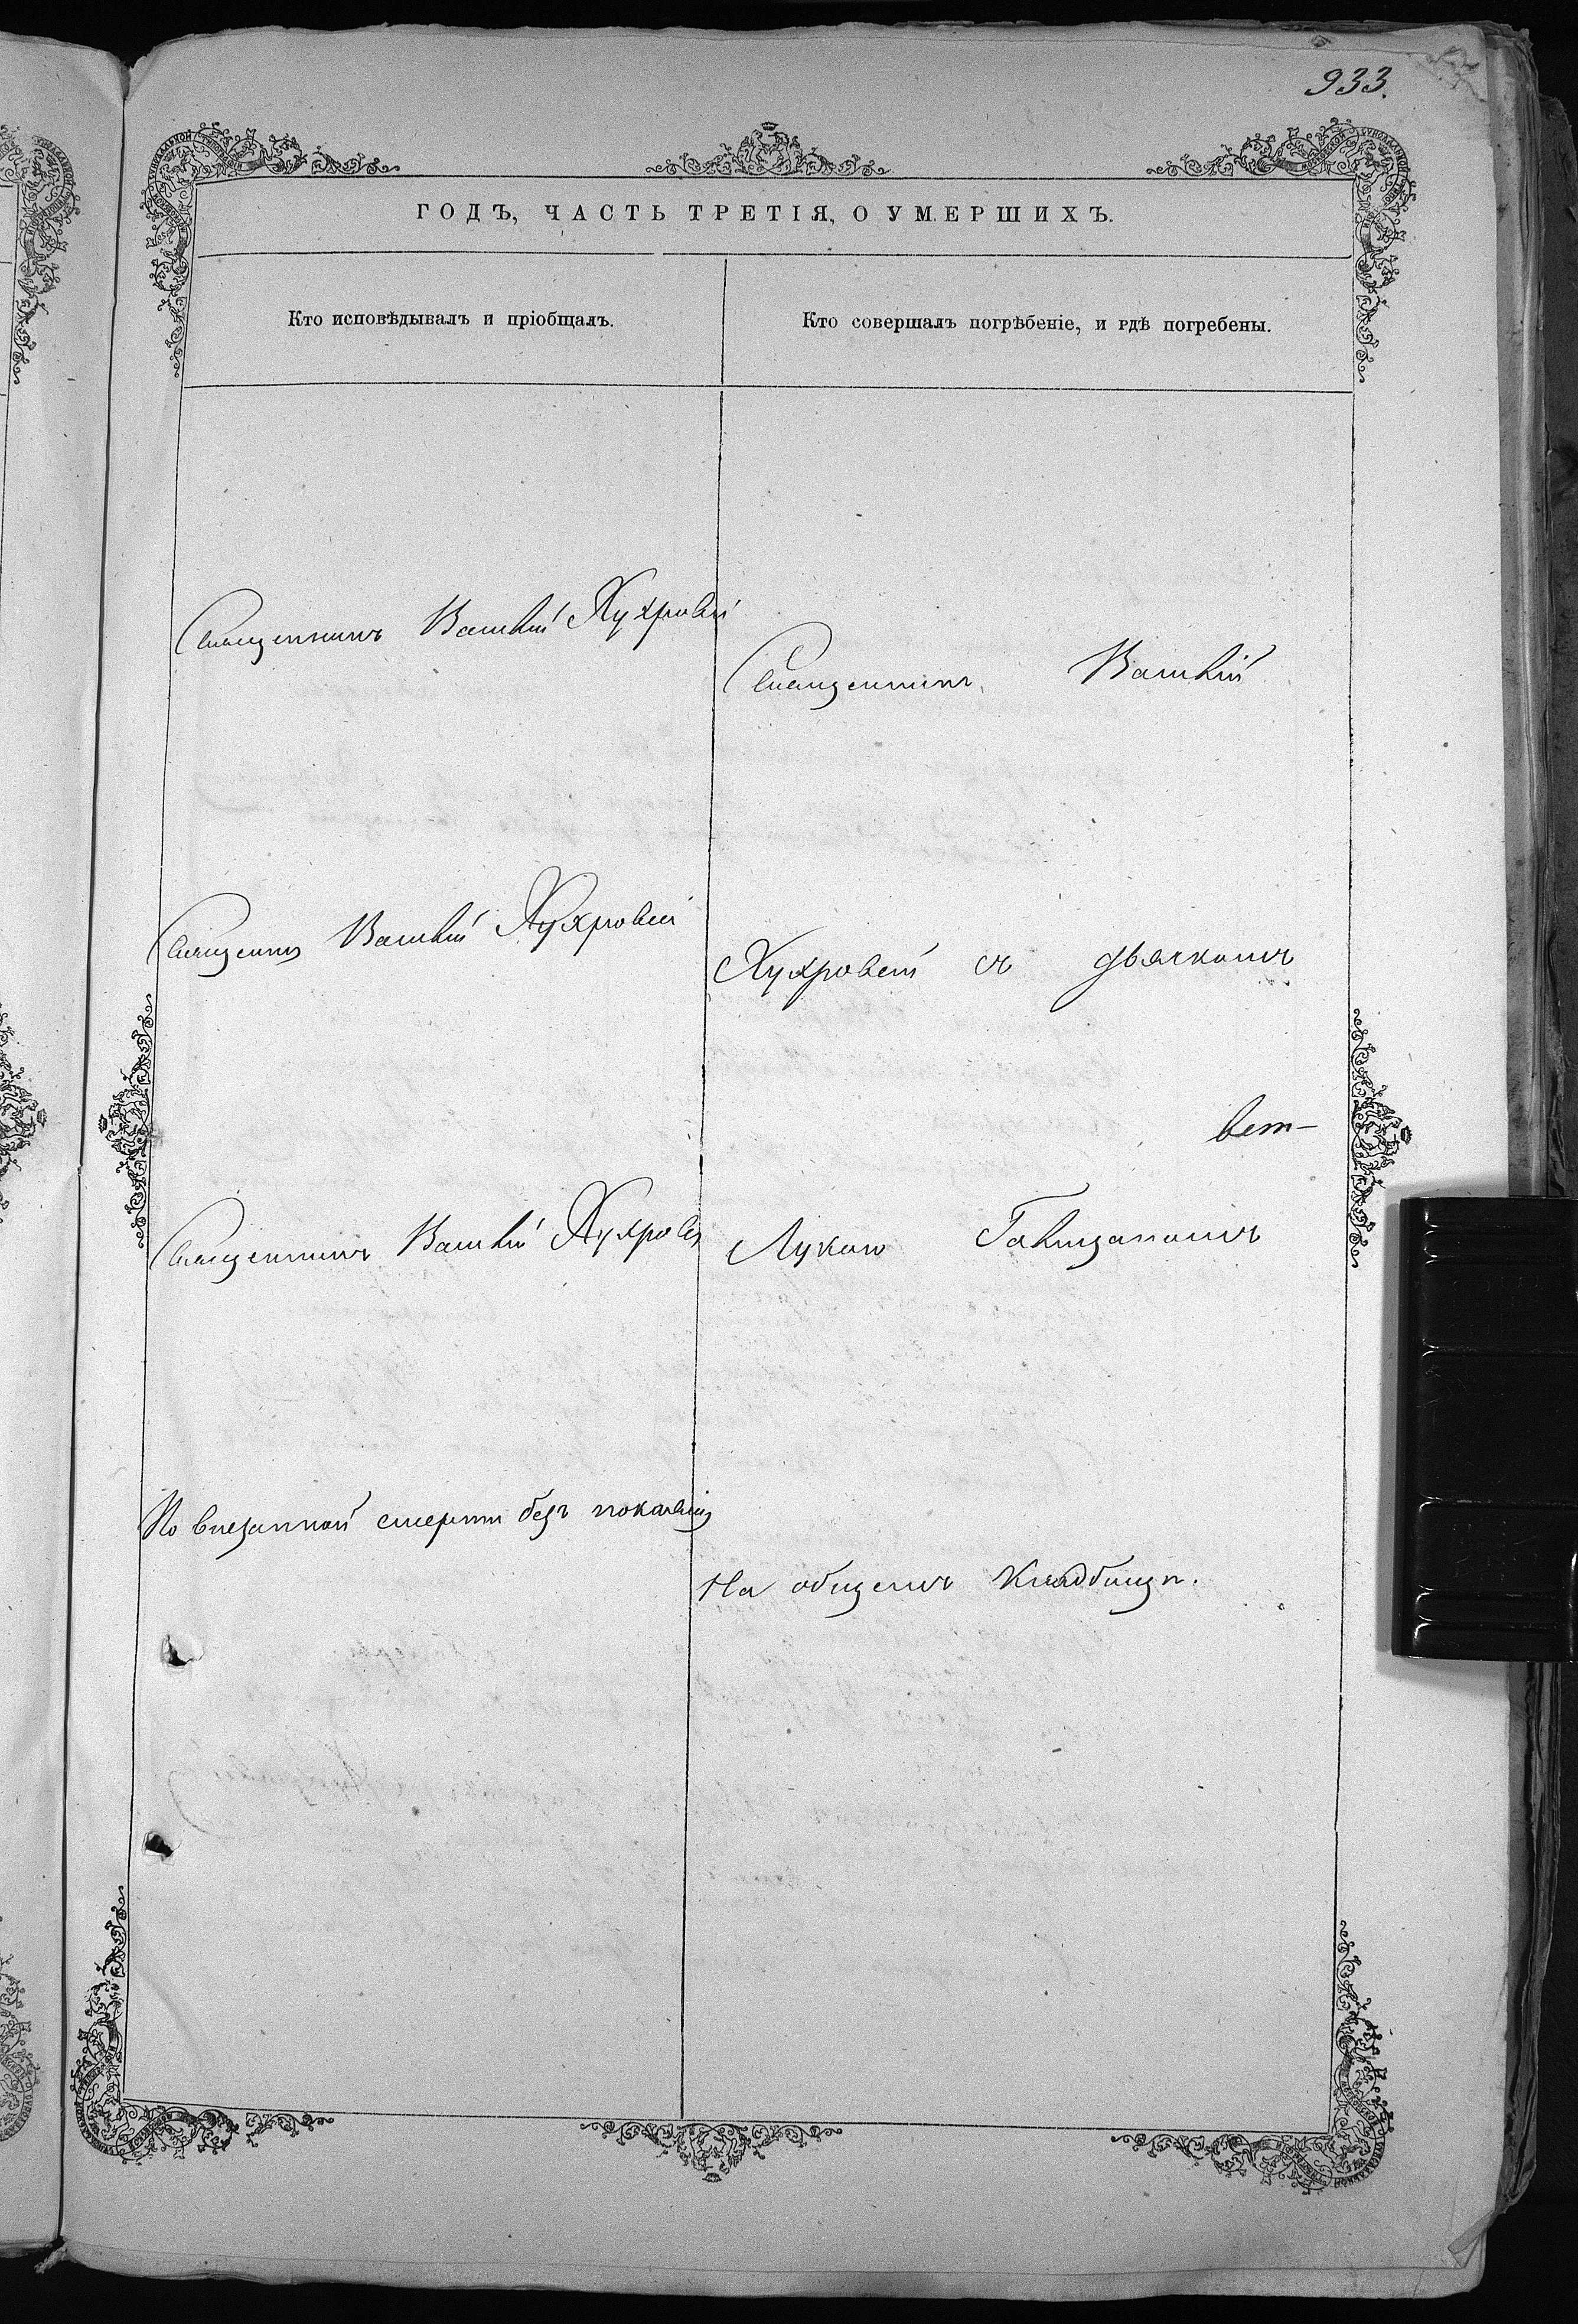 933.
ГОДЪ, ЧАСТЬ ТРЕТІЯ, О УМЕРШИХЪ.
Кто исповѣдывалъ и пріобщалъ.
Кто совершалъ погрѣбеніе, и гдѣ погребены.
Священникъ Василій
Священникъ Василій
Священникъ Василій
По внезапной смерти безъ покаянія
Священникъ Василій
съ дьячкомъ
Лукою
На общемъ кладбищѣ.